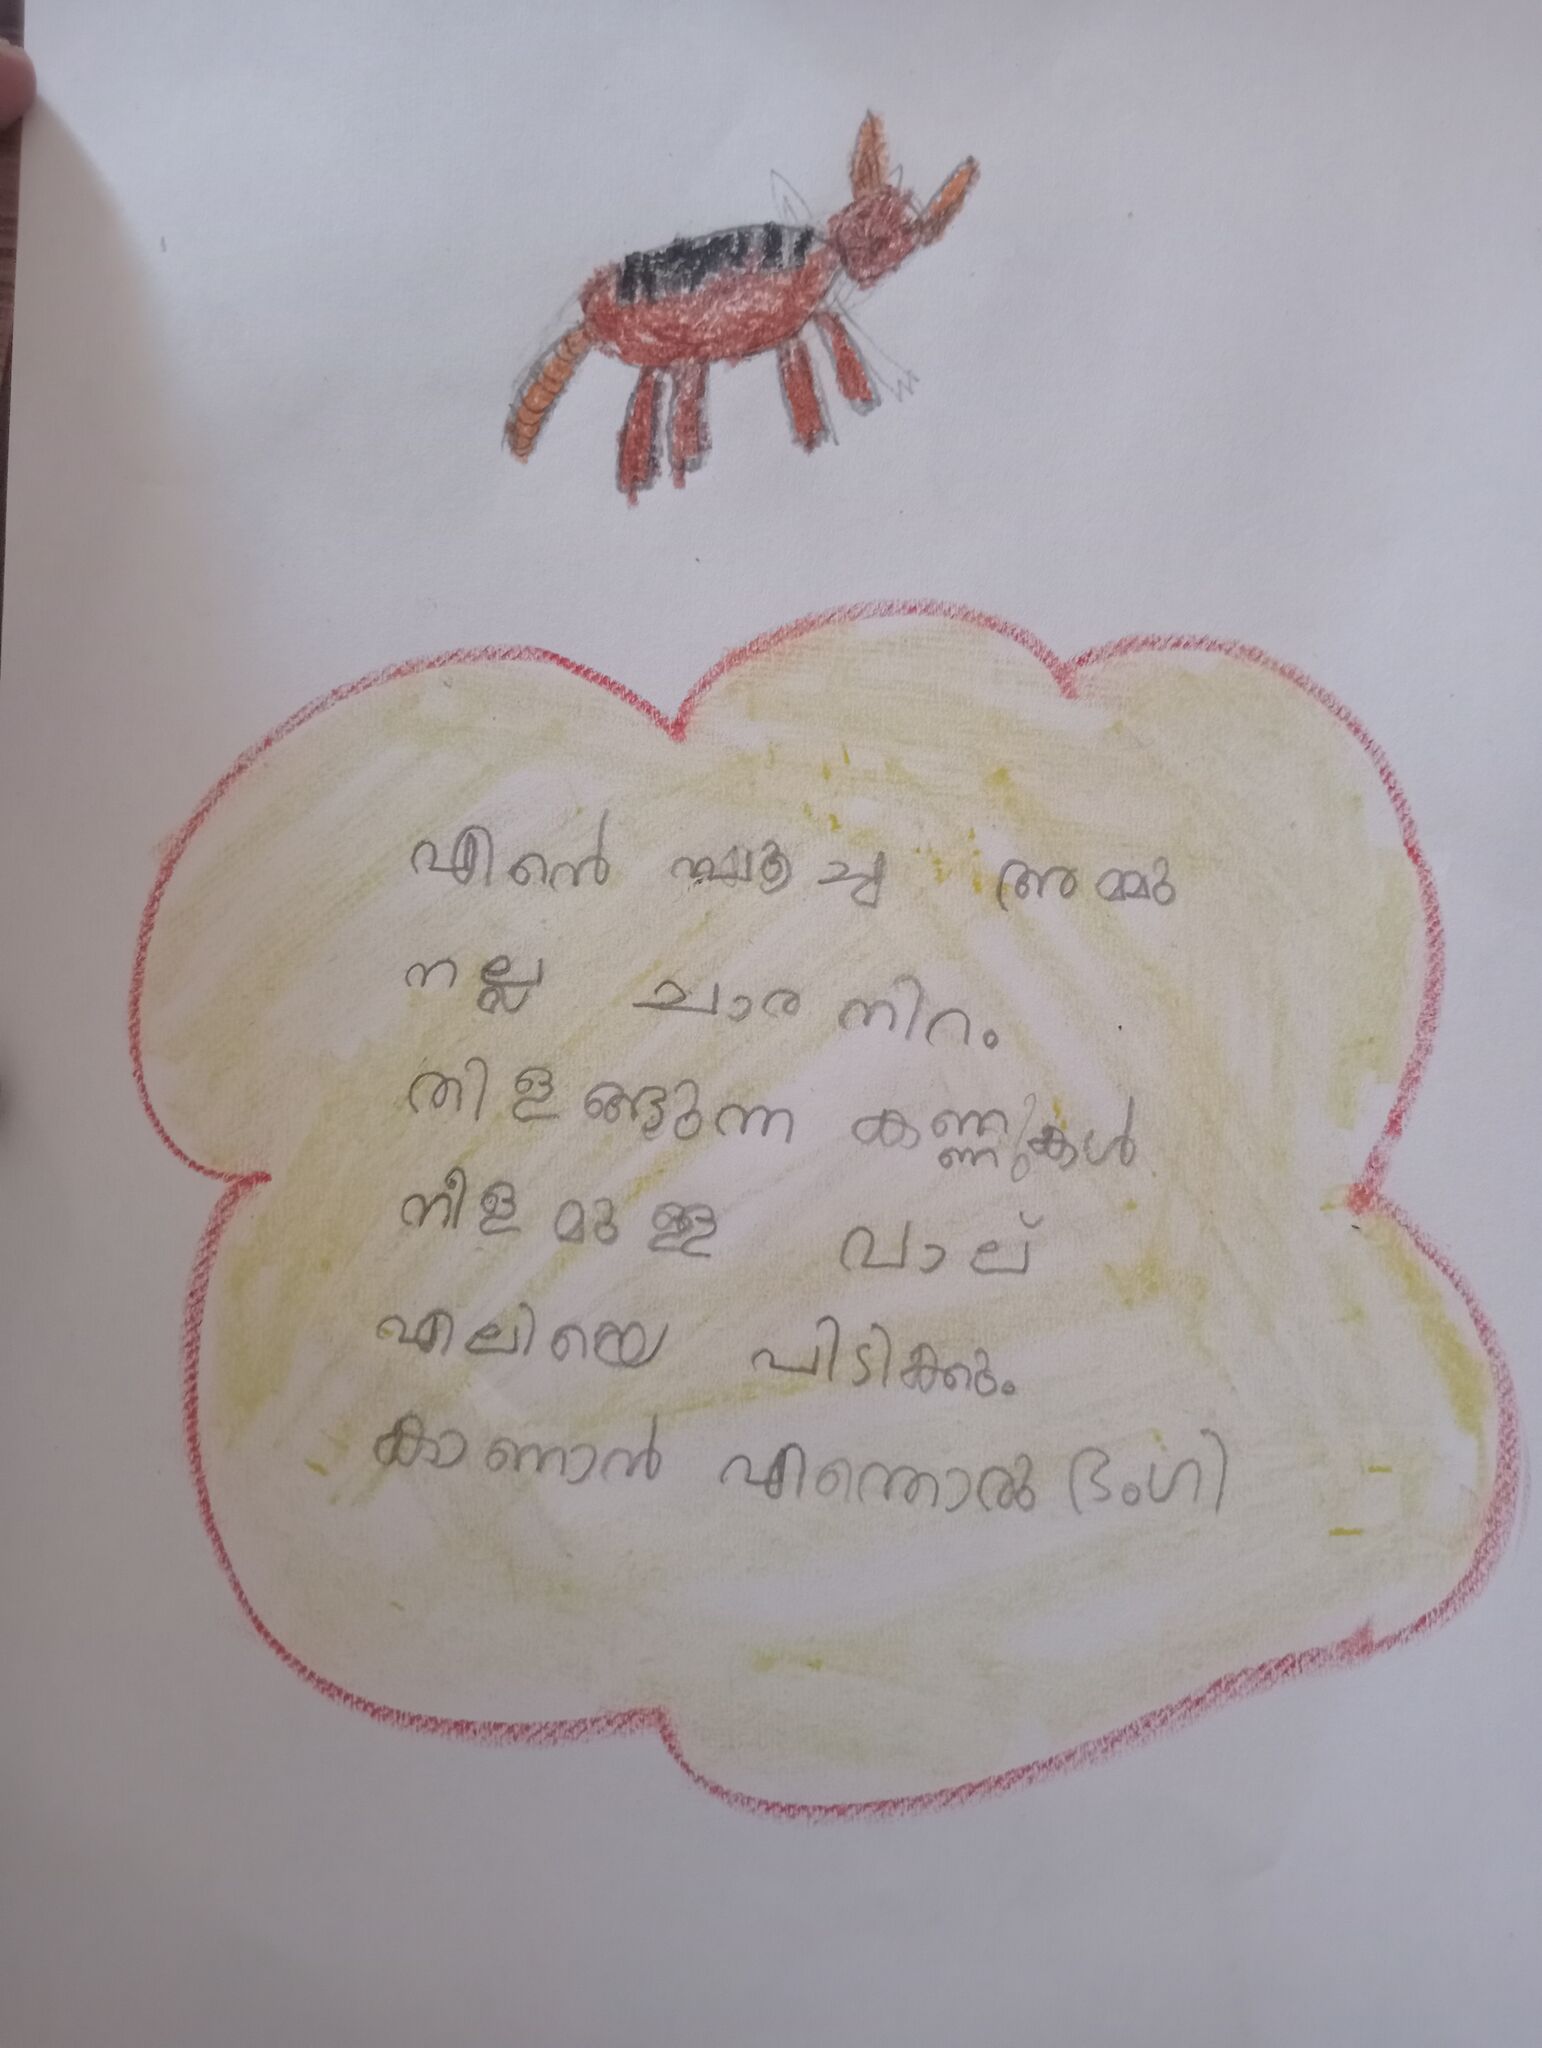 എന്റെ പൂച്ച അമ്മു
നല്ല ചാര നിറം
തിളങ്ങുന്ന കണ്ണുകൾ
നീളമുള്ള വാല്
എലിയെ പിടിക്കും
കാണാൻ എന്തൊരു ഭംഗി